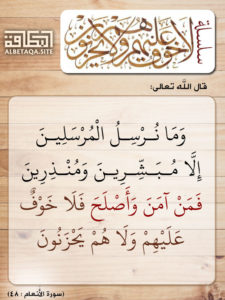 سلسلة
لا خوف عليهم ولا هم يحزنون
البطاقة
ALBETAQA.SITE
قال الله تعالى:
وَمَا نُرْسِلُ الْمُرْسَلِينَ
إِلَّا مُبَشِّرِينَ وَمُنْذِرِينَ
فَمَنْ آمَنَ وَأَصْلَحَ فَلَا خَوْفٌ
عَلَيْهِمْ وَلَا هُمْ يَحْزَنُونَ
(سورة الأنعام : ٤٨)